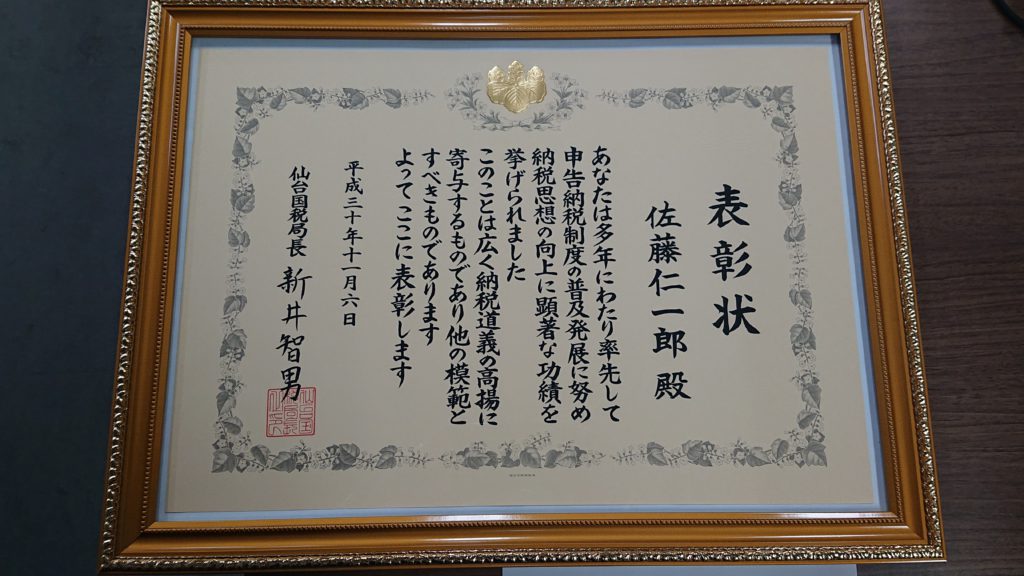 表彰状
佐藤仁一郎 殿
あなたは多年にわたり率先して
申告納税制度の普及発展に努め
納税思想の向上に顕著な功績を
挙げられました
このことは広く納税道義の高揚に
寄与するものであり他の模範と
すべきものであります
よってここに表彰します
平成三十年十一月六日
仙台国税局長 新井智男